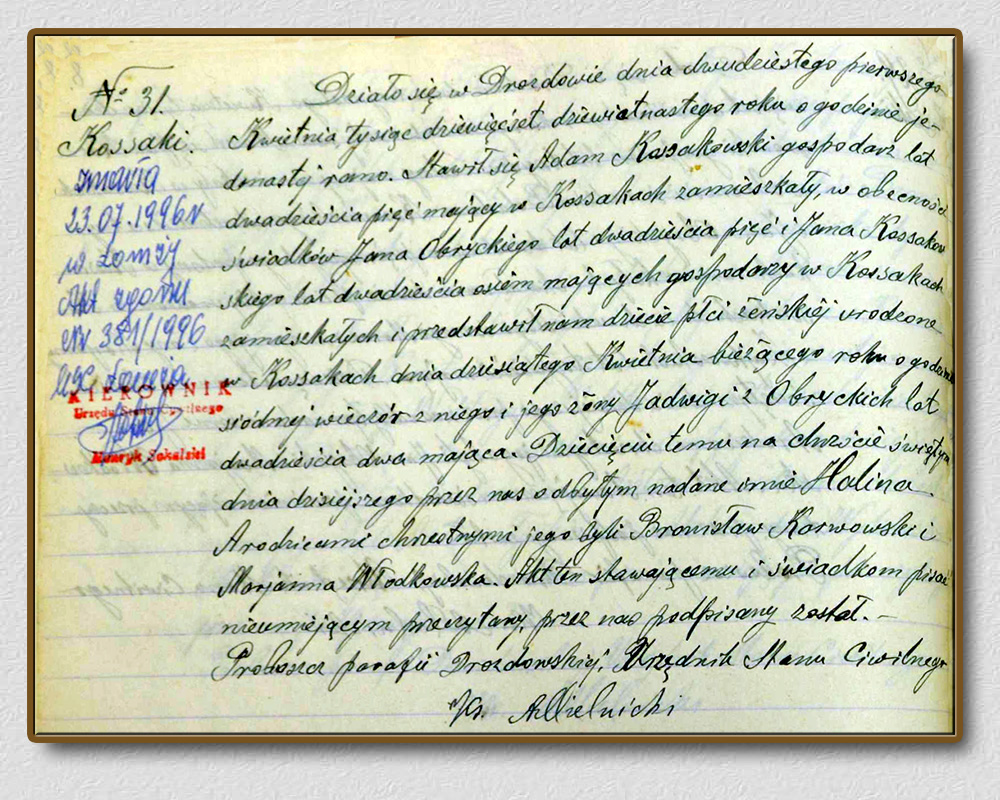 № 31.
Kossaki.
zmarła
23.07.1996 r
w Łomży
Akt zgonu
Nr 381/1996
USC Łomża
KIEROWNIK
Urzędu Stanu Cywilnego
Henryk Sokalski
Działo się w Drozdowie dnia dwudziestego pierwszego
Kwietnia tysiąc dziewięćset dziewiętnastego roku o godzinie je-
denastej rano. Stawił się Adam Kossakowski gospodarz lat
dwadzieścia pięć mający w Kossakach zamieszkały, w obecności
świadków Jana Obryckiego lat dwadzieścia pięć i Jana Kossakow
skiego lat dwadzieścia osiem mających gospodarzy w Kossakach
zamieszkałych i przedstawił nam dziecię płci żeńskiéj urodzone
w Kossakach dnia dziesiątego Kwietnia bieżącego roku o godzinie
siódmej wieczór z niego i jego żony Jadwigi z Obryckich lat
dwadzieścia dwa mająca. Dziecięciu temu na chrzcie świętym
dnia dzisiejszego przez nas odbytym nadane imię Halina.
A rodzicami chrzestnymi jego byli Bronisław Karwowski i
Marjanna Włodkowska. Akt ten stawającemu i świadkom pisać
nieumiejącym przeczytany, przez nas podpisany został. –
Proboszcz parafii Drozdowskiéj, Urzędnik Stanu Cywilnego
Ks. A. Mielnicki